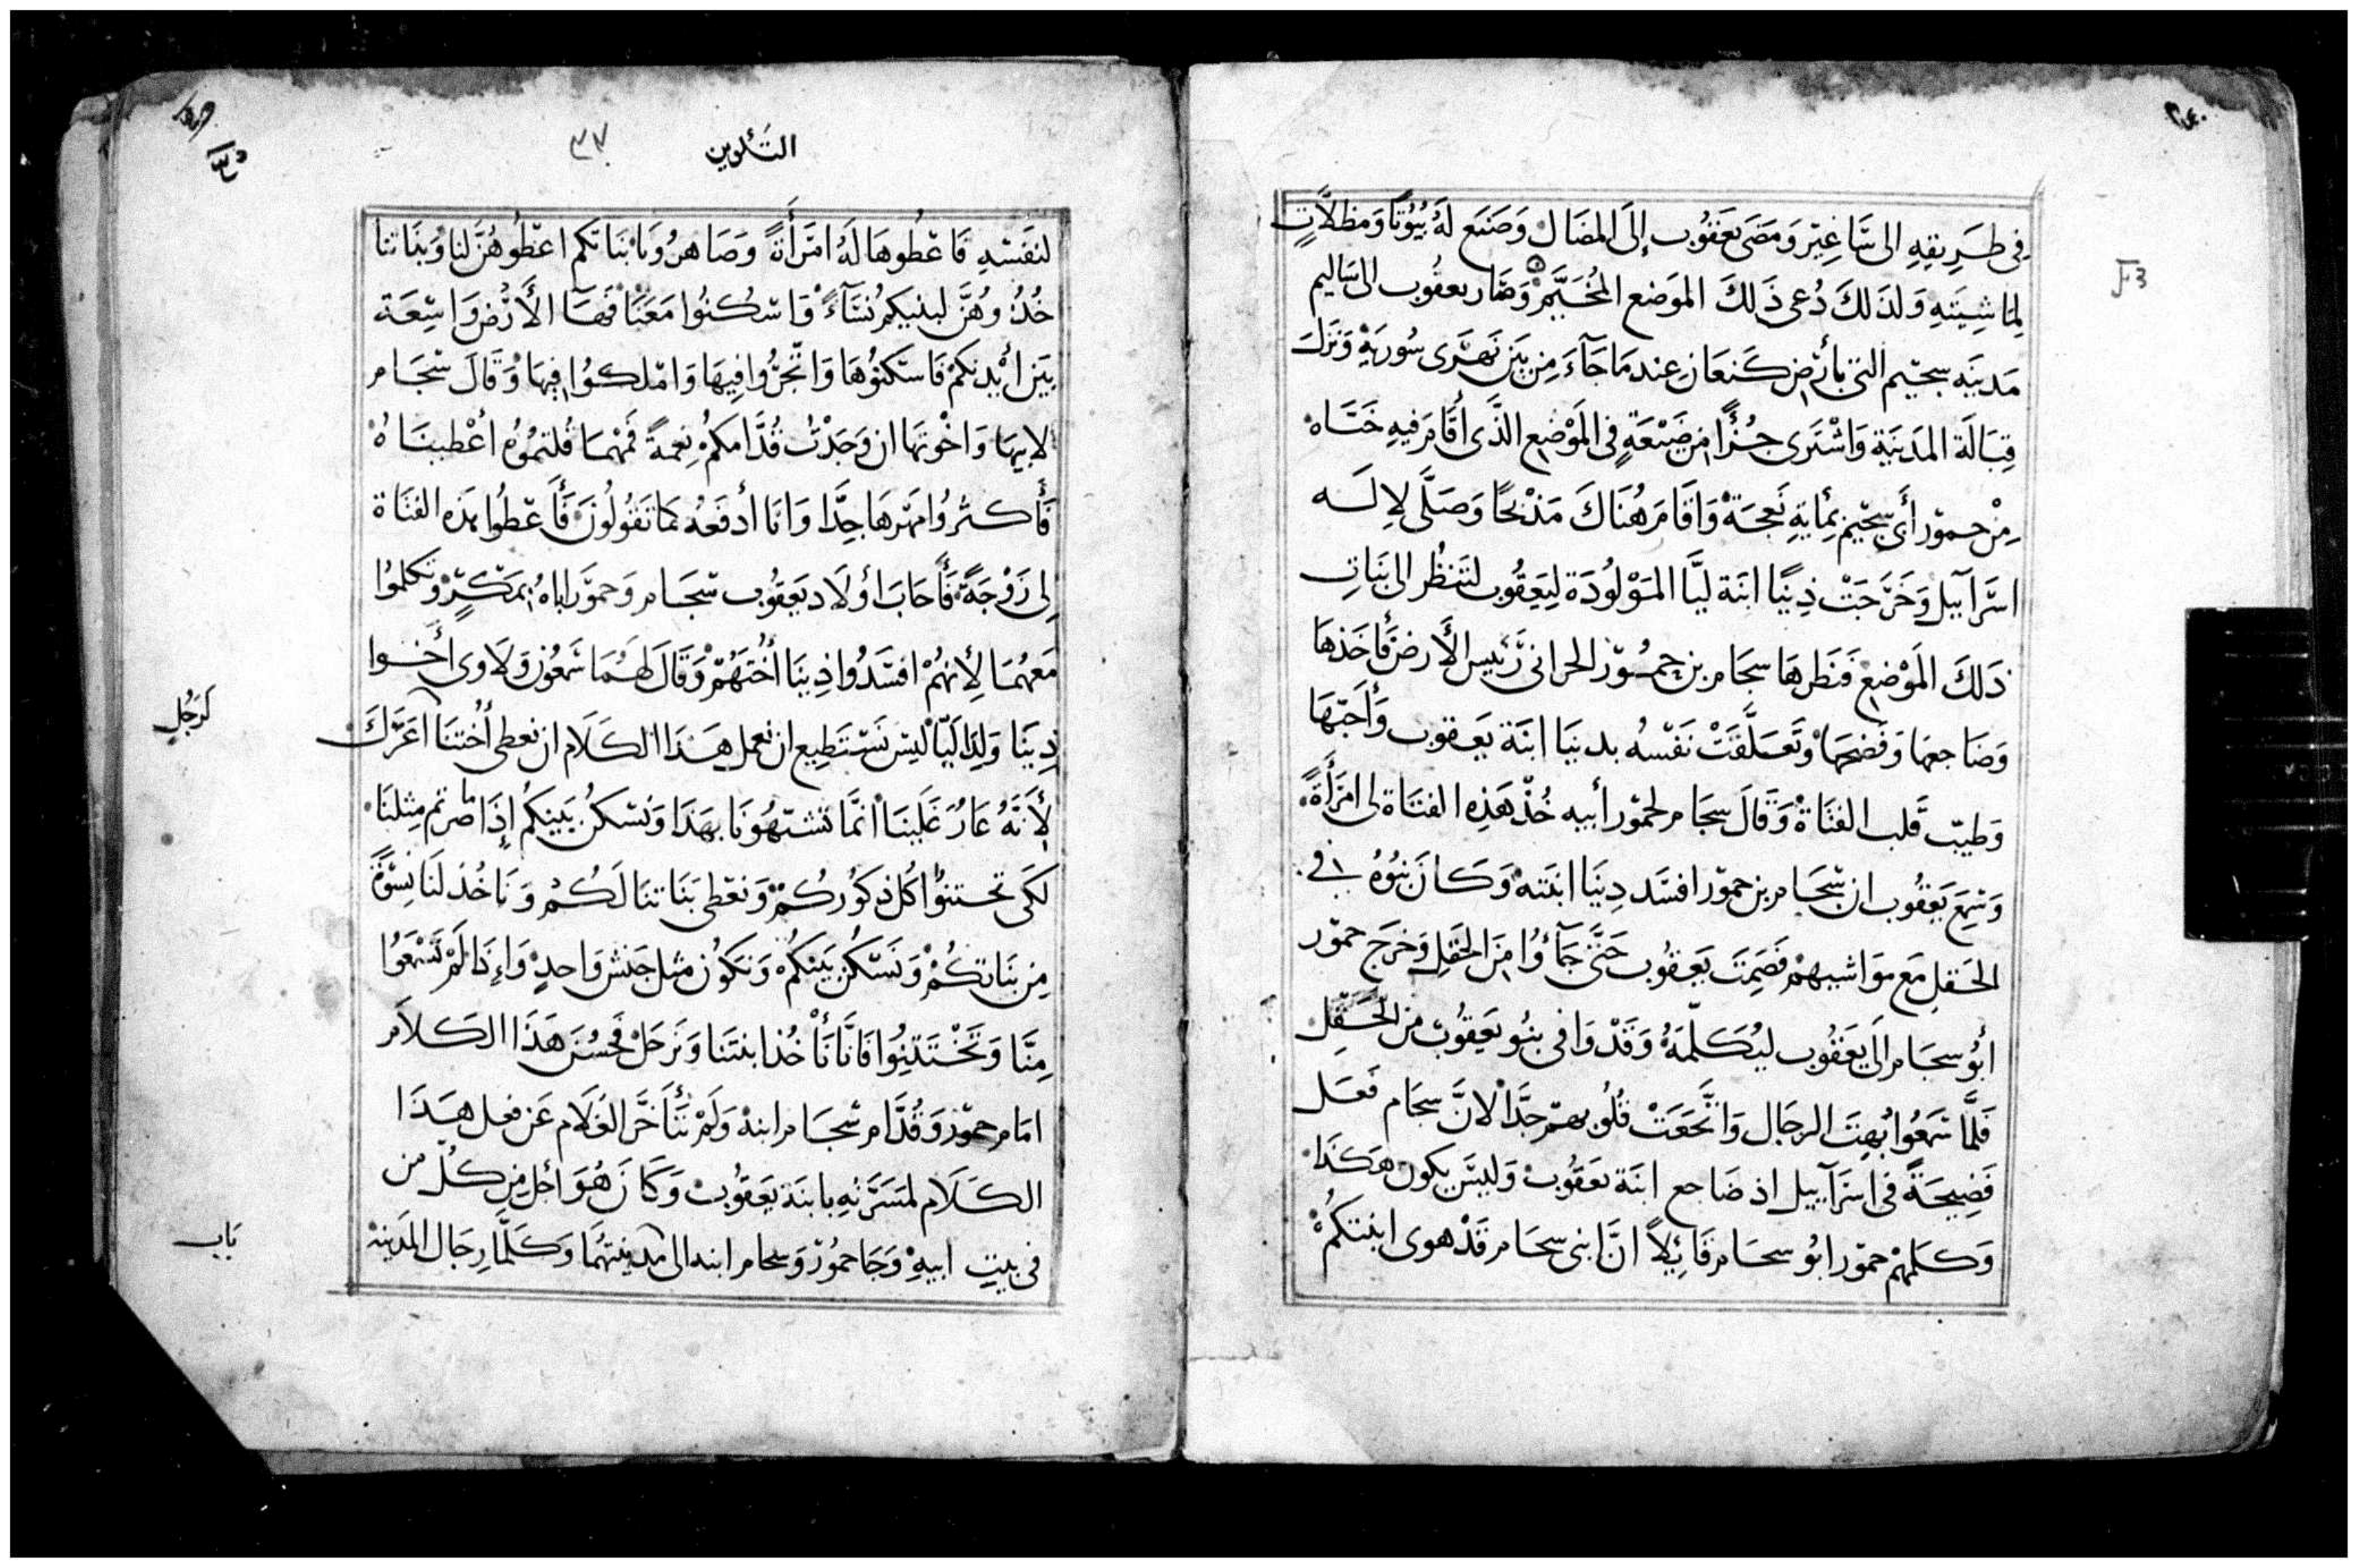 في طَرِيقِهِ الى سَّاغِيْر وَمَضَى يَعقُوب إِلَى المضَال وَصَنَع لَهُ بُيُوتًا وَمظلَّاتٍ
لِمَاشِيَتهِ وَلذَلكَ دُعى ذَلكَ الموَضع المُخَيَّمْ وَصَار يعقُوب الى سَاليم
مَدينَه سِجَيم التى بأرْضِ كَنعَان عِندمَا جَآءَ مِن بَيَن نَهرَى سُوريَةْ وَنَزَلَ
قِبَالَة المَدَينَة وَاشْتَرى جُزْأً مِن ضَيْعَةٍ فى المَوْضِع الذَّى أقَامَ فيهِ خَبَاه
مِنْ حمَوّر أَبى سِجَيم بِمايةِ نَعجَةْ وَاقَامَ هُنَاكَ مَذْبَحًا وَصَلَّى لإلَه
اسَّرآييل وَخَرَجَتْ دِينَا ابنَة ليَّا المَوْلُودَة لِيَعقُوب لتنظُر الى بَنَاتِ
ذَلكَ المَوْضِع فَنَظرهَا سجَام بن حمُوّر الحرانى رَئيس الأَرض فَأَخَذهَا
وَضَاجعهَا وَفَضحَهَا وتَعَلَّقَتْ نَفسُه بدينَا ابنَة يَعقوب وَأَحَبّهَا
وَطيّب قَلب الفتَاةْ وَقَالَ سجَام لحموّر أبيه خُذ هَذِه الفتَاة لى امَرأَةً
وَسَمِعَ يَعقُوب ان سّجَام بن حموّر افسَد دِينَا ابنَته وَكَانَ بنُوُه فى
الحَقلِ مَع مَوَاشيهمْ فَصَمتَ يَعقُوب حَتَّى جَآءُوا مِنَ الحَقلِ وَخرَج حموّر
ابُو سجَام الَى يَعَقُوب ليُكلّمَهُ وَقَدْ وَافى بنُو يَعقُوب من الحَقْلِ
فَلمَّا سَمعُوا بُهتَ الرجَال وَانَّخَعَتْ قُلُوبهمْ جدَّاْ لانَّ سجَام فَعَل
فَضِيحَةً فى اسَرآييل اذ ضَاجع ابنَة يَعقُوب وَليسَ يكون هَكَذَا
وَكَلمهُمْ حموّر ابُو سجَام قَائِلاً انَّ ابنى سجَام قَدْ هوى ابنتكُمْ
التَكوين
٣٧
لنفَسّه فَاعْطُوهَا لَهُ امَرأَةً وَصَاهرُونَا بنَاتكم اعْطُوهُنَّ لنا وَبنَاتنا
خُذُوهُنَّ لبنيكم نُسَآءً وَاسكُنُوا مَعَنَا فَهَا الأَرْض وَاسِعَة
بَيَن أَيْديكمْ فَاسّكنوُهَا وَاتّجرُوا فِيهَا وَامْلكوُا فِيهَا وَقَالَ سْجَام
لابِيهَا وَاخْوتهَا ان وَجَدْتُ قُدَّامكمُ نِعمةً فَمهْمَا قُلتمُوُه أعْطينَاهُ
فَأَكثرُوا مَهرهَا جِدَّا وَانَا أدفَعهُ كمَا تَقُولُونَ فَأَعْطوُا هَذه الفتَاة
لِى زَوْجَةً فَأَجابَ أوْلَاد يَعقُوب سّجَام وَحموّر اباهُ بمَكَرٍ وتكلموُا
مَعهُمَا لأِنهُمْ افسَدُوا دِينَا أُختَهُمْ وَقَالَ لهمَا شَمعُون وَلَاوى أَخوا
دِينَا وَلِدَا لَيّا ليسَ نَسْتَطِيع ان نعمل هَذَا الكَلَام ان نعطى أُختنَا اغَرَلَ
لرَجُلٍ
لِأَنَهُ عَارٌ عَلَينَا انمَّا تشبّهُونَا بهَذَا وَنسْكنُ بَينكُمْ إِذَا ما صرتم مِثلنَا
لكَى تختتنوُا كُل ذكوُركُمْ وَنعْطى بَنَاتنَا لَكُمْ وَنَاخُذ لنَا نِسْوَةً
مِن بنَاتِكُمْ وَنَسّكُن بَينكُمْ وَنَكوُن مثل جَنس وَاحدٍ وَإذَا لَمْ تَسْمَعَوُا
مِنَّا وَتَخْتَتنُوا فَانَّا نَأْخُذ ابنتَنا وَنَرحَلْ فَحسُنَ هَذَا الكَلاَم
امَام حموّر وَقُدَّام سّجَام ابنهْ وَلَمْ يتَأَخَّر الغُلَام عَن فعل هَذَا
الكَلَام لمسَرَّتِهِ بابنَة يَعَقوُب وَكَانَ هُوَ اجل مِن كُلّ من
فى بيتِ ابيهْ وَجَا حموُرّ وَسجام ابنه الى مَدينتهُمَا وَكَلَّمَا رِجَال المَدَينة
بَاب